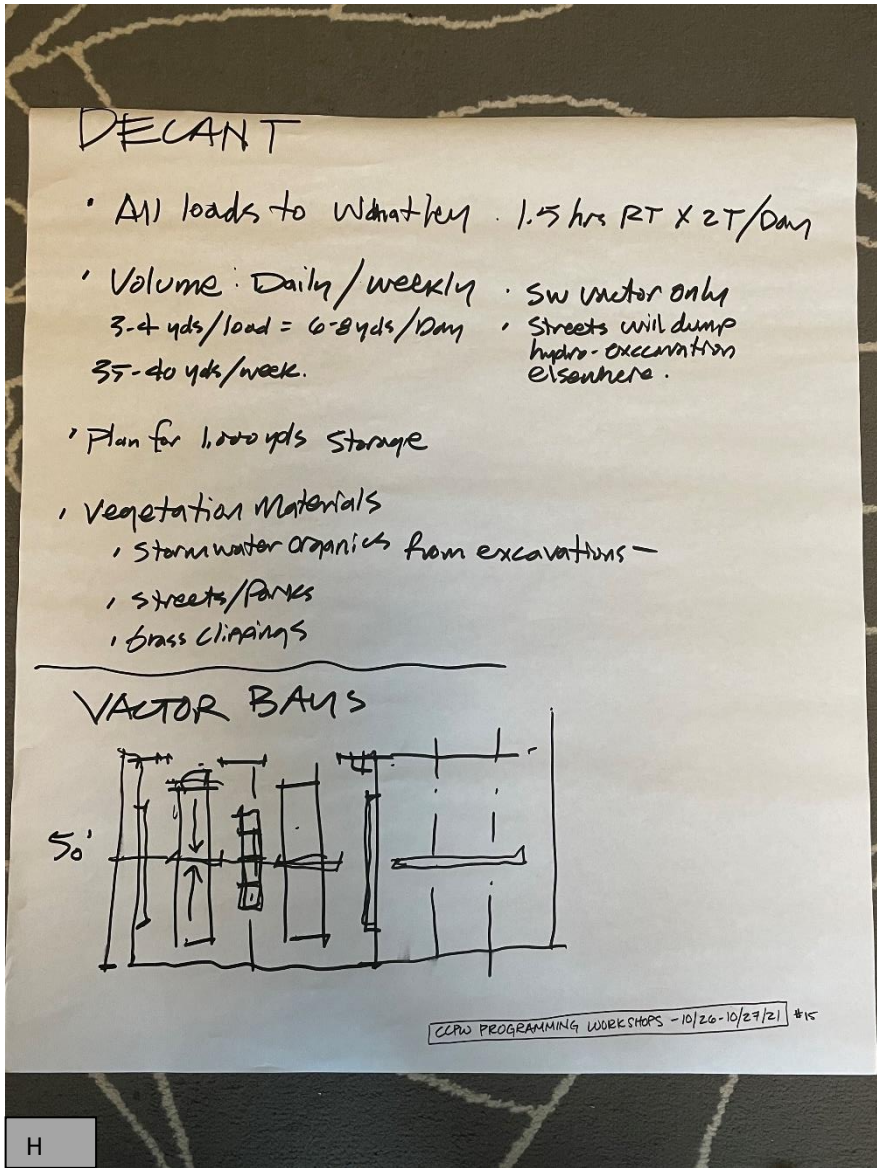 DECANT
· All loads to Whatley · 1.5 hrs RT X 2T/Day
· Volume: Daily/weekly
3-4 yds/load = 6-8 yds/Day
35-40 yds/week.
· SW vactor only
· Streets will dump
hydro-exccavation
elsewhere.
· Plan for 1,000 yds Storage
· Vegetation Materials
· Stormwater organics from excavations -
· Streets/Parks
· Grass Clippings
VACTOR BAYS
50'
CCPW PROGRAMMING WORKSHOPS - 10/26-10/27/21 #15
H